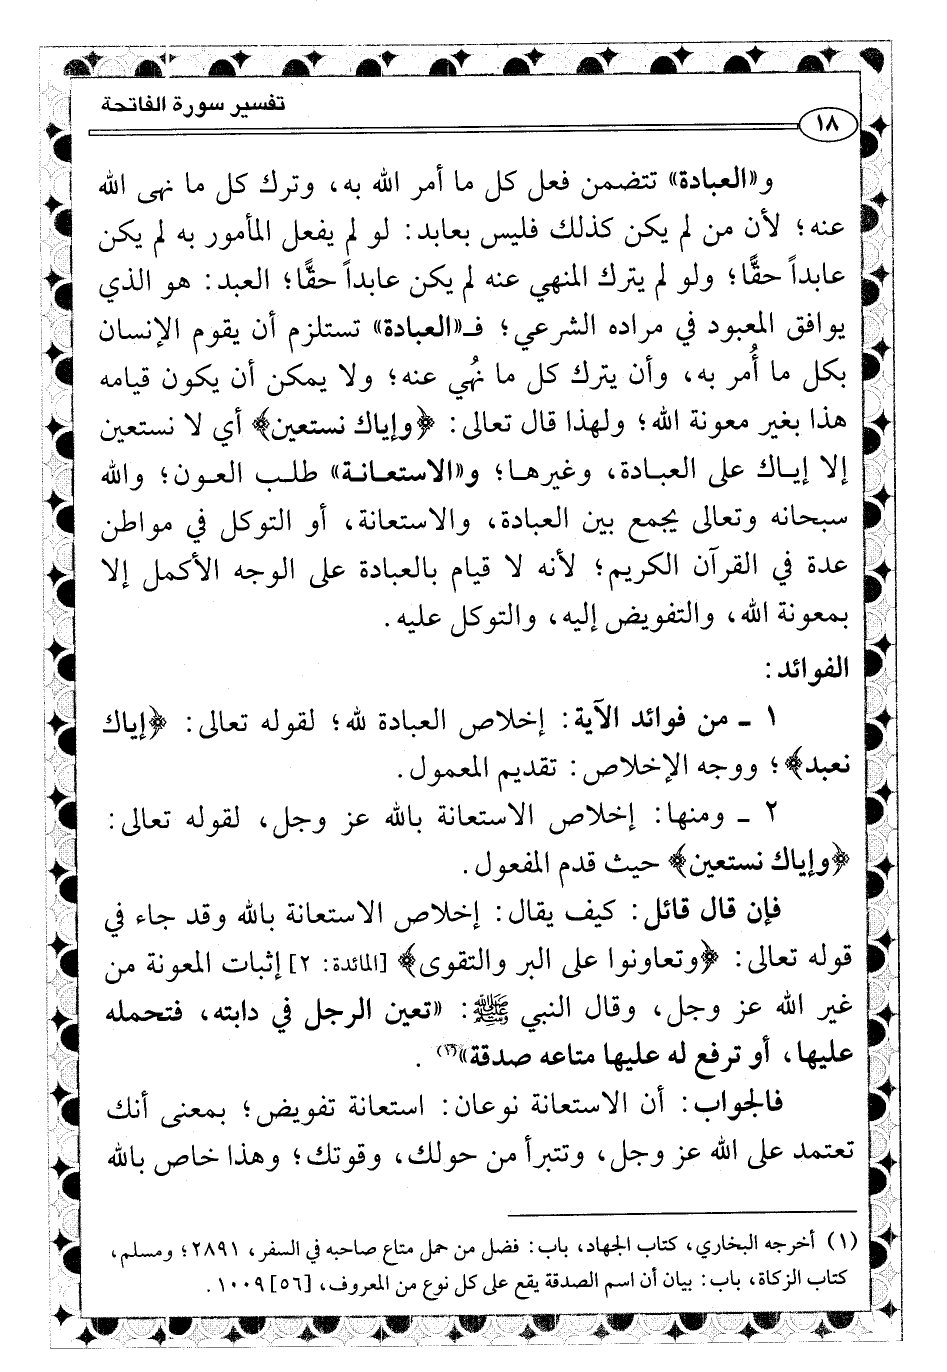 تفسير سورة الفاتحة
١٨
و«العبادة» تتضمن فعل كل ما أمر الله به، وترك كل ما نهى الله
عنه؛ لأن من لم يكن كذلك فليس بعابد: لو لم يفعل المأمور به لم يكن
عابداً حقًّا؛ ولو لم يترك المنهي عنه لم يكن عابداً حقًّا؛ العبد: هو الذي
يوافق المعبود في مراده الشرعي؛ فـ«العبادة» تستلزم أن يقوم الإنسان
بكل ما أُمر به، وأن يترك كل ما نُهي عنه؛ ولا يمكن أن يكون قيامه
هذا بغير معونة الله؛ ولهذا قال تعالى: ﴿وإياك نستعين﴾ أي لا نستعين
إلا إياك على العبادة، وغيرها؛ و«الاستعانة» طلب العون؛ والله
سبحانه وتعالى يجمع بين العبادة، والاستعانة، أو التوكل في مواطن
عدة في القرآن الكريم؛ لأنه لا قيام بالعبادة على الوجه الأكمل إلا
بمعونة الله، والتفويض إليه، والتوكل عليه.
الفوائد:
١ ـ من فوائد الآية: إخلاص العبادة لله؛ لقوله تعالى: ﴿إياك
نعبد﴾؛ ووجه الإخلاص: تقديم المعمول.
٢ ـ ومنها: إخلاص الاستعانة بالله عز وجل، لقوله تعالى:
﴿وإياك نستعين﴾ حيث قدم المفعول.
فإن قال قائل: كيف يقال: إخلاص الاستعانة بالله وقد جاء في
قوله تعالى: ﴿وتعاونوا على البر والتقوى﴾ [المائدة: ٢] إثبات المعونة من
غير الله عز وجل، وقال النبي ﷺ: «تعين الرجل في دابته، فتحمله
عليها، أو ترفع له عليها متاعه صدقة»(١).
فالجواب: أن الاستعانة نوعان: استعانة تفويض؛ بمعنى أنك
تعتمد على الله عز وجل، وتتبرأ من حولك، وقوتك؛ وهذا خاص بالله
(١) أخرجه البخاري، كتاب الجهاد، باب: فضل من حمل متاع صاحبه في السفر، ٢٨٩١؛ ومسلم،
كتاب الزكاة، باب: بيان أن اسم الصدقة يقع على كل نوع من المعروف، [٥٦] ١٠٠٩.